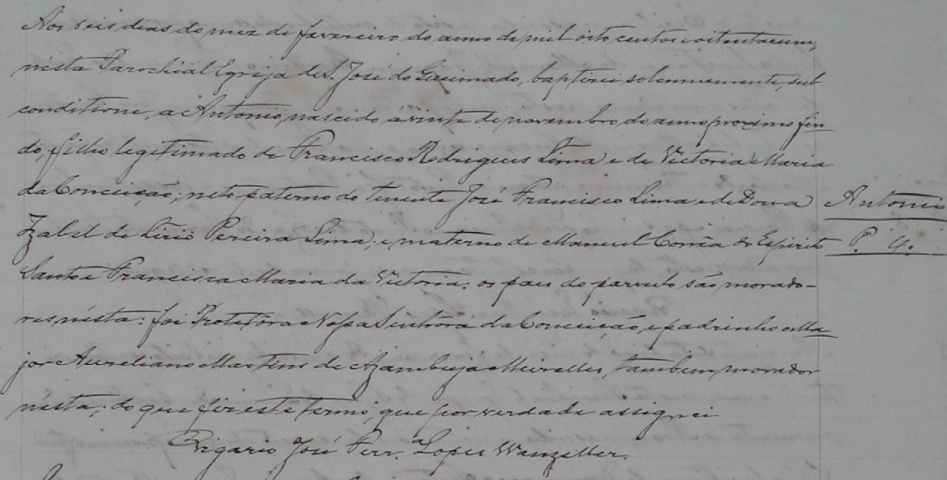 Aos seis dias do mez de fevereiro do anno de mil oito centos e oitenta e um,
nesta Parochial Egreja de S. José do Queimado, baptizei solemnemente, sub
conditione, a Antonio, nascido á vinte de novembro do anno proximo fin
do, filho legitimado de Francisco Rodrigues Lima e de Victoria Maria
da Conceição; neto paterno do Tenente José Francisco Lima e de Dona
Izabel de Lirio Pereira Lima; e materno de Manoel Corrêa do Espirito
Santo e Francisca Maria da Victoria: os paes do parvulo são morado-
res nesta: foi Protetôra Nossa Senhora da Conceição, e padrinho o Ma
jor Aureliano Martins de Azambuja Meirelles, tambem morador
nesta; do que fiz este termo, que por verdade assignei
Vigario José Ferr.ª Lopes Wanzeller.
Antonio
P. 4.